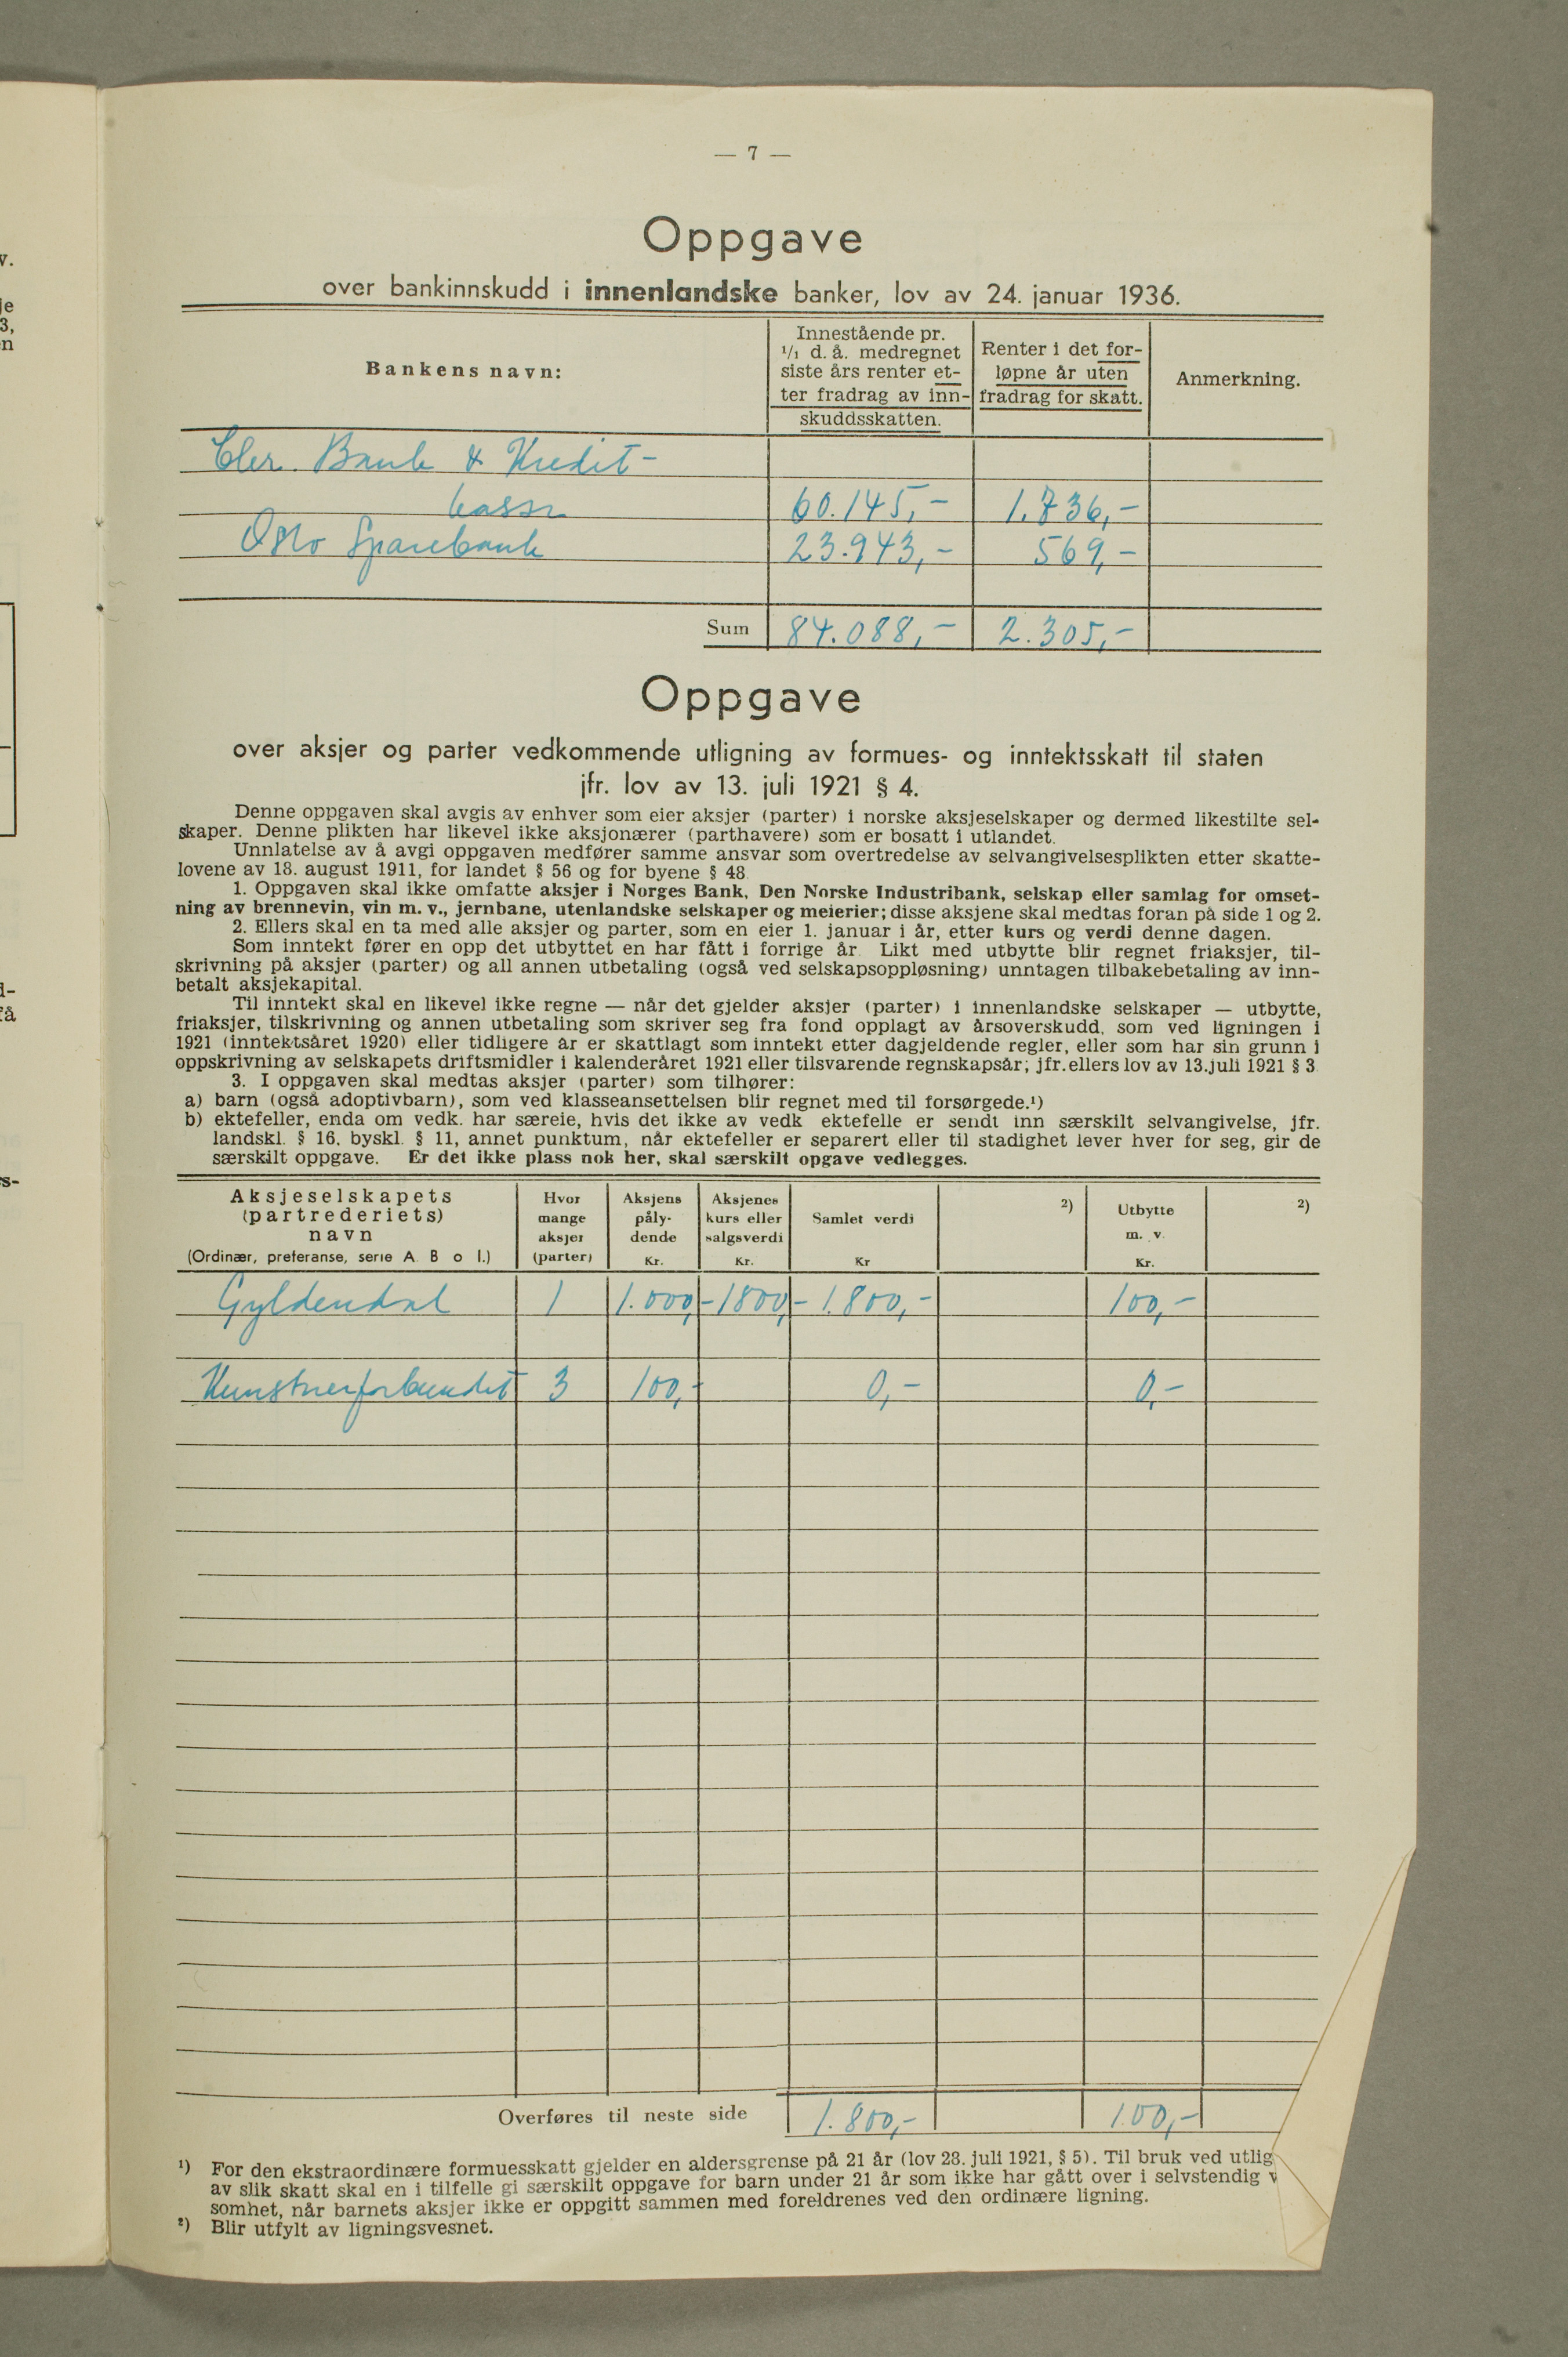 — 7 —
Oppgave
over bankinnskudd i innenlandske banker, lov av 24. januar 1936.
Bankens navn:
Innestående pr.
1/1 d. å. medregnet
siste års renter et-
ter fradrag av inn-
skuddsskatten.
Renter i det for-
løpne år uten
fradrag for skatt.
Anmerkning.
Chr. Bank & Kredit-
kasse 60.145,- 1.736,-
Oslo Sparebank 23.943,- 569,-
Sum 84.088,- 2.305,-
Oppgave
over aksjer og parter vedkommende utligning av formues- og inntektsskatt til staten
jfr. lov av 13. juli 1921 § 4.
Denne oppgaven skal avgis av enhver som eier aksjer (parter) i norske aksjeselskaper og dermed likestilte sel-
skaper. Denne plikten har likevel ikke aksjonærer (parthavere) som er bosatt i utlandet.
Unnlatelse av å avgi oppgaven medfører samme ansvar som overtredelse av selvangivelsesplikten etter skatte-
lovene av 18. august 1911, for landet § 56 og for byene § 48
1. Oppgaven skal ikke omfatte aksjer i Norges Bank, Den Norske Industribank, selskap eller samlag for omset-
ning av brennevin, vin m. v., jernbane, utenlandske selskaper og meierier; disse aksjene skal medtas foran på side 1 og 2.
2. Ellers skal en ta med alle aksjer og parter, som en eier 1. januar i år, etter kurs og verdi denne dagen.
Som inntekt fører en opp det utbyttet en har fått i forrige år Likt med utbytte blir regnet friaksjer, til-
skrivning på aksjer (parter) og all annen utbetaling (også ved selskapsoppløsning) unntagen tilbakebetaling av inn-
betalt aksjekapital.
Til inntekt skal en likevel ikke regne — når det gjelder aksjer (parter) i innenlandske selskaper — utbytte,
friaksjer, tilskrivning og annen utbetaling som skriver seg fra fond opplagt av årsoverskudd, som ved ligningen i
1921 (inntektsåret 1920) eller tidligere år er skattlagt som inntekt etter dagjeldende regler, eller som har sin grunn i
oppskrivning av selskapets driftsmidler i kalenderåret 1921 eller tilsvarende regnskapsår; jfr. ellers lov av 13. juli 1921 § 3
3. I oppgaven skal medtas aksjer (parter) som tilhører:
a) barn (også adoptivbarn), som ved klasseansettelsen blir regnet med til forsørgede.¹)
b) ektefeller, enda om vedk. har særeie, hvis det ikke av vedk ektefelle er sendt inn særskilt selvangivelse, jfr.
landskl. § 16, byskl. § 11, annet punktum, når ektefeller er separert eller til stadighet lever hver for seg, gir de
særskilt oppgave. Er det ikke plass nok her, skal særskilt opgave vedlegges.
Aksjeselskapets
(partrederiets)
navn
(Ordinær, preferanse, serie A B o l.)
Hvor
mange
aksjer
(parter)
Aksjens
påly-
dende
Kr.
Aksjenes
kurs eller
salgsverdi
Kr.
Samlet verdi
Kr
²)
Utbytte
m. v.
Kr.
²)
Gyldendal 1 1.000,- 1800,- 1.800,- 100,-
Kunstnerforbundet 3 100,- 0,- 0,-
Overføres til neste side 1.800,- 100,-
¹) For den ekstraordinære formuesskatt gjelder en aldersgrense på 21 år (lov 28. juli 1921, § 5). Til bruk ved utlig
av slik skatt skal en i tilfelle gi særskilt oppgave for barn under 21 år som ikke har gått over i selvstendig v
somhet, når barnets aksjer ikke er oppgitt sammen med foreldrenes ved den ordinære ligning.
²) Blir utfylt av ligningsvesnet.
v.
je
3,
n
få
s-